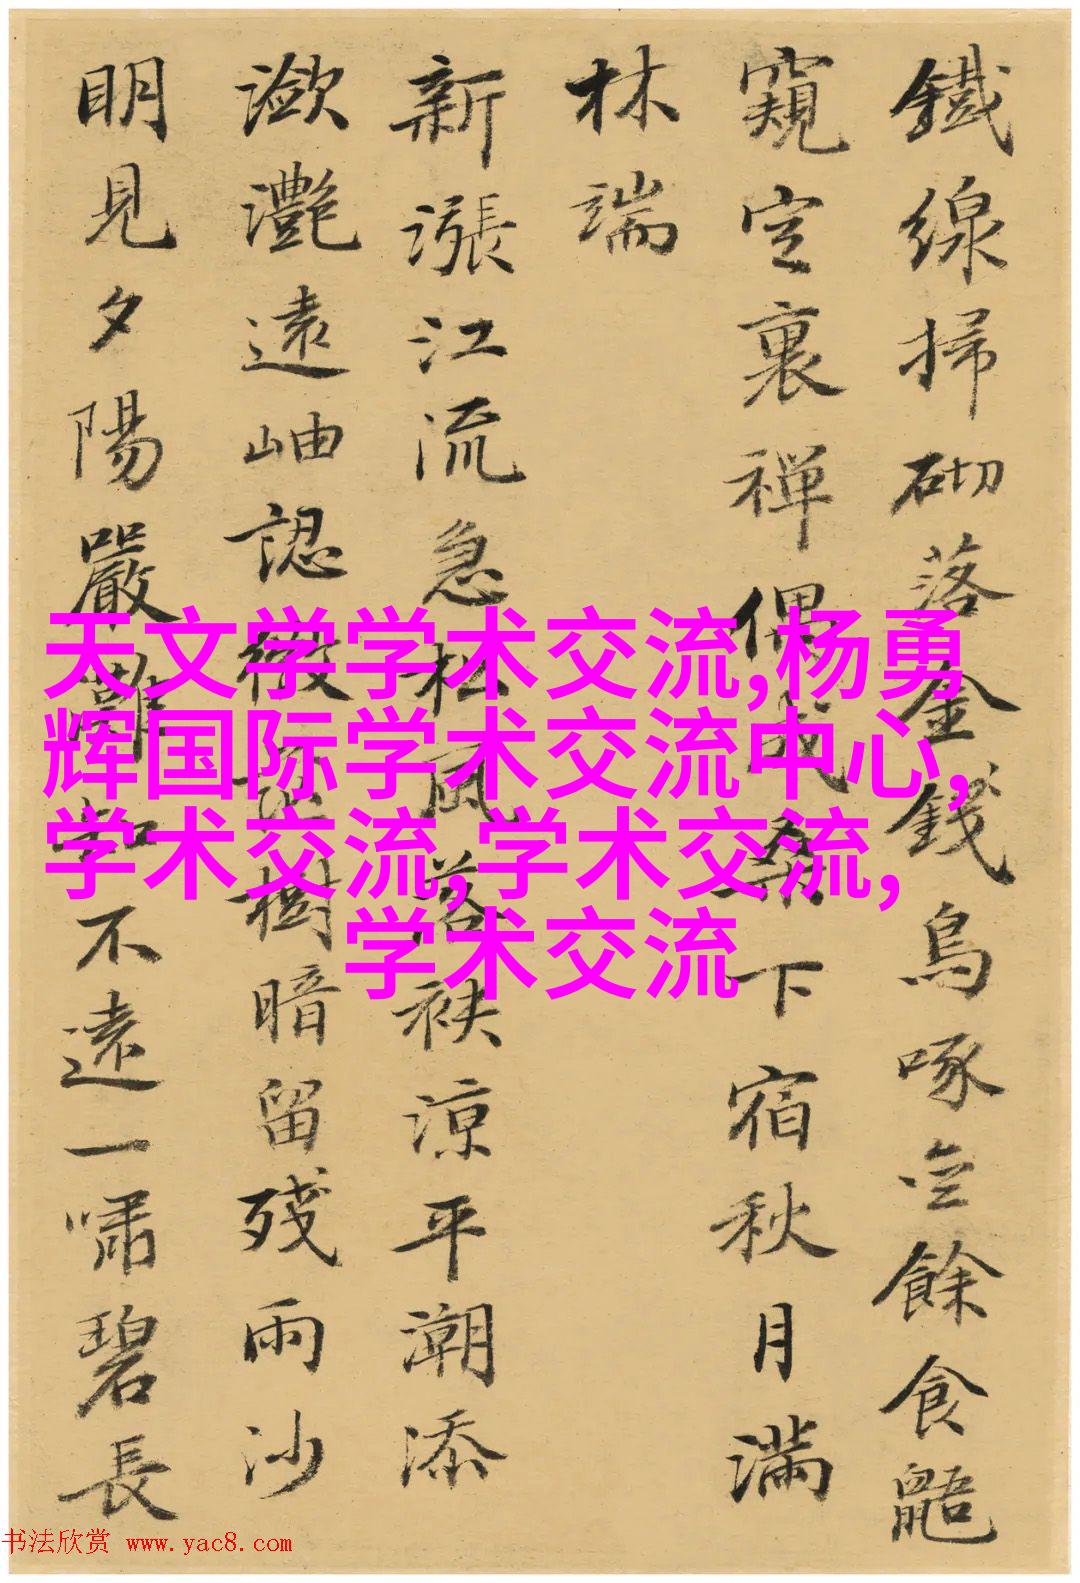 鐵線掃砌落金錢烏啄空餘食鼯
窺空裏禪偶戈桑下宿秋月滿
林端
新漲江流急松風落袂涼平潮添
瀲灔遠岫認微茫樹暗留殘雨沙
明見夕陽嚴灘知不遠一嘯碧長
天文学学术交流,杨勇
辉国际学术交流中心,
学术交流,学术交流,
学术交流
书法欣赏 www.yac8.com